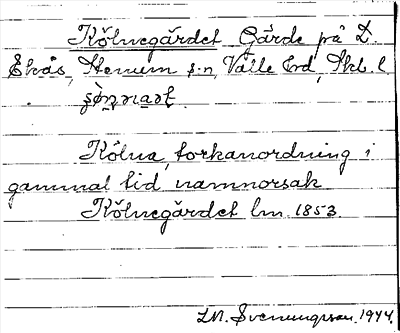 Kölnegärdet Gärde på D.
Ekås, Stenum s:n, Valle hrd, Skb. l
Kölna, torkanordning i
gammal tid namnorsak
Kölnegärdet lm. 1853.
LM. Svenungsson. 1944.